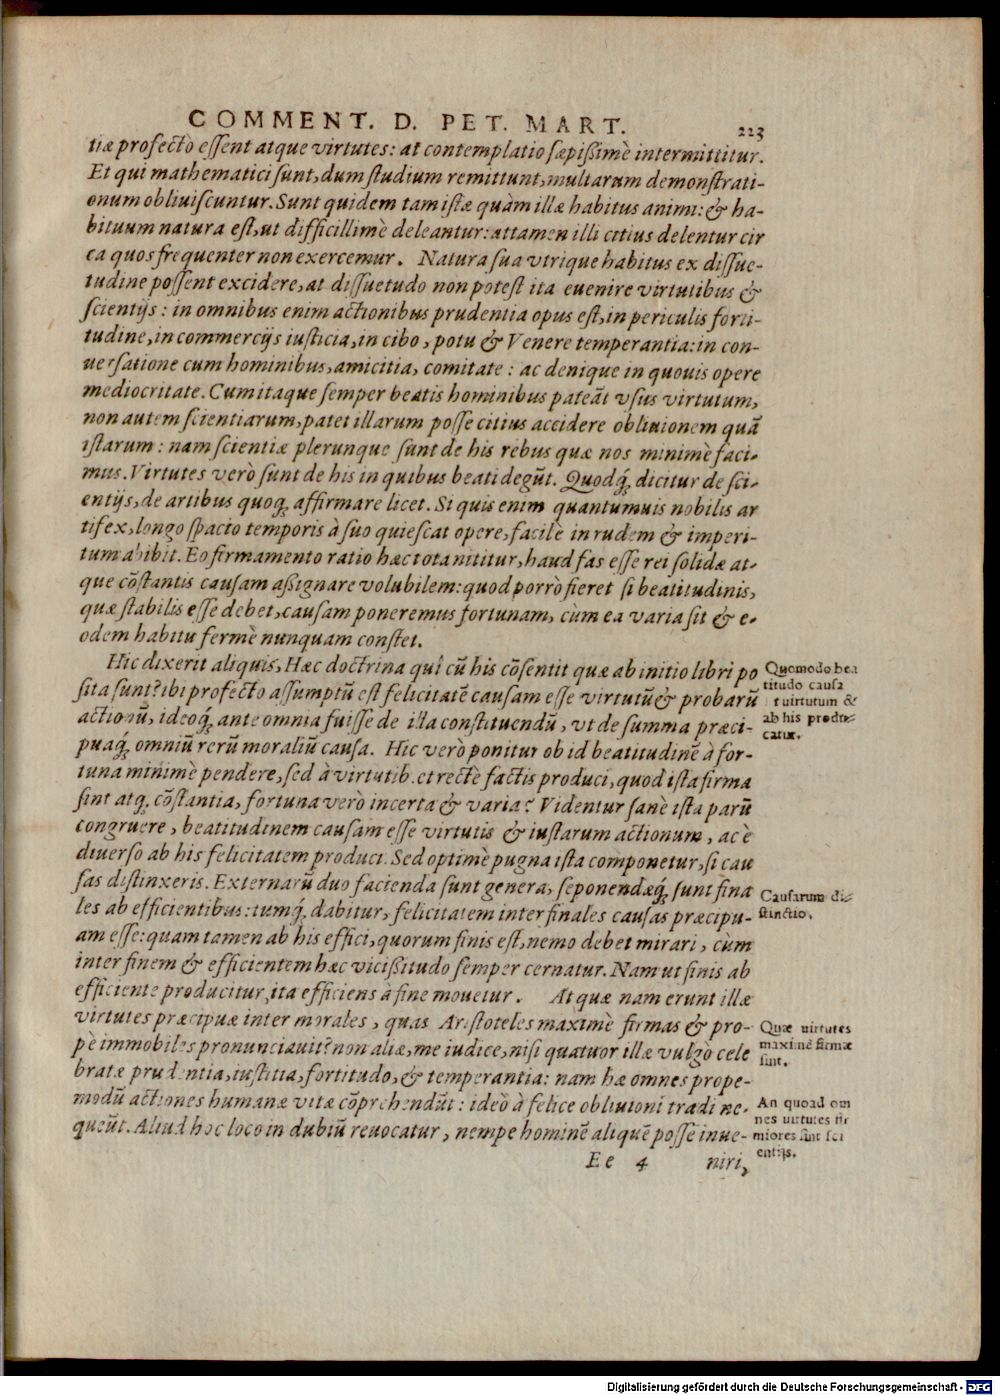 COMMENT. D. PET. MART. 223
tiæ profectò essent atque virtutes: at contemplatio sæpißimè intermittitur.
Et qui mathematici sunt, dum studium remittunt, multarum demonstrati-
onum obliuiscuntur. Sunt quidem tam istæ quàm illæ habitus animi: & ha-
bituum natura est, ut difficillimè deleantur: attamen illi citius delentur cir
ca quos frequenter non exercemur. Natura sua vtrique habitus ex dissue-
tudine possent excidere, at dissuetudo non potest ita euenire virtutibus &
scientijs: in omnibus enim actionibus prudentia opus est, in periculis forti-
tudine, in commercijs iusticia, in cibo, potu & Venere temperantia: in con-
uersatione cum hominibus, amicitia, comitate: ac denique in quouis opere
mediocritate. Cum itaque semper beatis hominibus pateāt vsus virtutum,
non autem scientiarum, patet illarum posse citius accidere obliuionem quā
istarum: nam scientiæ plerunque sunt de his rebus quæ nos minimè faci-
mus. Virtutes verò sunt de his in quibus beati degūt. Quodq́; dicitur de sci-
entijs, de artibus quoq; affirmare licet. Si quis enim quantumuis nobilis ar
tifex, longo spacio temporis à suo quiescat opere, facilè in rudem & imperi-
tum abibit. Eo firmamento ratio hæc tota nititur, haud fas esse rei solidæ at-
que cōstantis causam aßignare volubilem: quod porrò fieret si beatitudinis,
quæ stabilis esse debet, causam poneremus fortunam, cùm ea varia sit & e-
odem habitu fermè nunquam constet.
Hic dixerit aliquis, Hæc doctrina quî cū his cōsentit quæ ab initio libri po
sita sunt? ibi profectò assumptū est felicitatē causam esse virtutū & probarū
actionū, ideoq́; ante omnia fuisse de illa constituendū, vt de summa præci-
puaq́; omniū rerū moraliū causa. Hic verò ponitur ob id beatitudinē à for-
tuna minimè pendere, sed à virtutib. et rectè factis produci, quod ista firma
sint atq; cōstantia, fortuna verò incerta & varia? Videntur sanè ista parū
congruere, beatitudinem causam esse virtutis & iustarum actionum, ac è
diuerso ab his felicitatem produci. Sed optimè pugna ista componetur, si cau
sas distinxeris. Externarū duo facienda sunt genera, seponendæq́; sunt fina
les ab efficientibus: tumq́; dabitur, felicitatem inter finales causas præcipu-
am esse: quam tamen ab his effici, quorum finis est, nemo debet mirari, cùm
inter finem & efficientem hæc vicißitudo semper cernatur. Nam ut finis ab
efficiente producitur, ita efficiens à fine mouetur. At quæ nam erunt illæ
virtutes præcipuæ inter morales, quas Aristoteles maximè firmas & pro-
pè immobiles pronunciauit? non aliæ, me iudice, nisi quatuor illæ vulgò cele
bratæ prudentia, iustitia, fortitudo, & temperantia: nam hæ omnes prope-
modū actiones humanæ vitæ cōprehendūt: ideò à felice obliuioni tradi ne-
queūt. Aliud hoc loco in dubiū reuocatur, nempe hominē aliquē posse inue-
Ee 4 niri,
Quomodo bea
titudo causa
uirtutum &
ab his produ-
catur.
Causarum di-
stinctio.
Quæ uirtutes
maximè firmæ
sint.
An quoad om
nes uirtutes fir
miores sint sci
entijs.
Digitalisierung gefördert durch die Deutsche Forschungsgemeinschaft - DFG